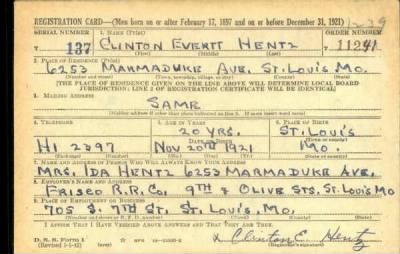 REGISTRATION CARD—(Men born on or after February 17, 1897 and on or before December 31, 1921)
SERIAL NUMBER 1. NAME (Print) ORDER NUMBER
137 CLINTON EVERTT HENTZ 11241
2. PLACE OF RESIDENCE (Print)
6253 MARMADUKE AVE. ST. LOUIS MO.
(Number and street) (Town, township, village, or city) (County) (State)
[THE PLACE OF RESIDENCE GIVEN ON THE LINE ABOVE WILL DETERMINE LOCAL BOARD
JURISDICTION; LINE 2 OF REGISTRATION CERTIFICATE WILL BE IDENTICAL]
3. MAILING ADDRESS
SAME
4. TELEPHONE 5. AGE IN YEARS 6. PLACE OF BIRTH
20 YRS. ST. LOUIS
DATE OF BIRTH
HI 2397 NOV 20TH 1921 MO.
7. NAME AND ADDRESS OF PERSON WHO WILL ALWAYS KNOW YOUR ADDRESS
MRS. IDA HENTZ 6253 MARMADUKE AVE.
8. EMPLOYER'S NAME AND ADDRESS
FRISCO R.R. CO. 9TH & OLIVE STS. ST. LOUIS MO
9. PLACE OF EMPLOYMENT OR BUSINESS
705 S. 7TH ST. ST. LOUIS, MO.
(Number and street or R. F. D. number) (Town) (County) (State)
I AFFIRM THAT I HAVE VERIFIED ABOVE ANSWERS AND THAT THEY ARE TRUE.
D. S. S. Form 1
(Revised 1-1-42) (over) x Clinton E. Hentz
(Registrant's signature)